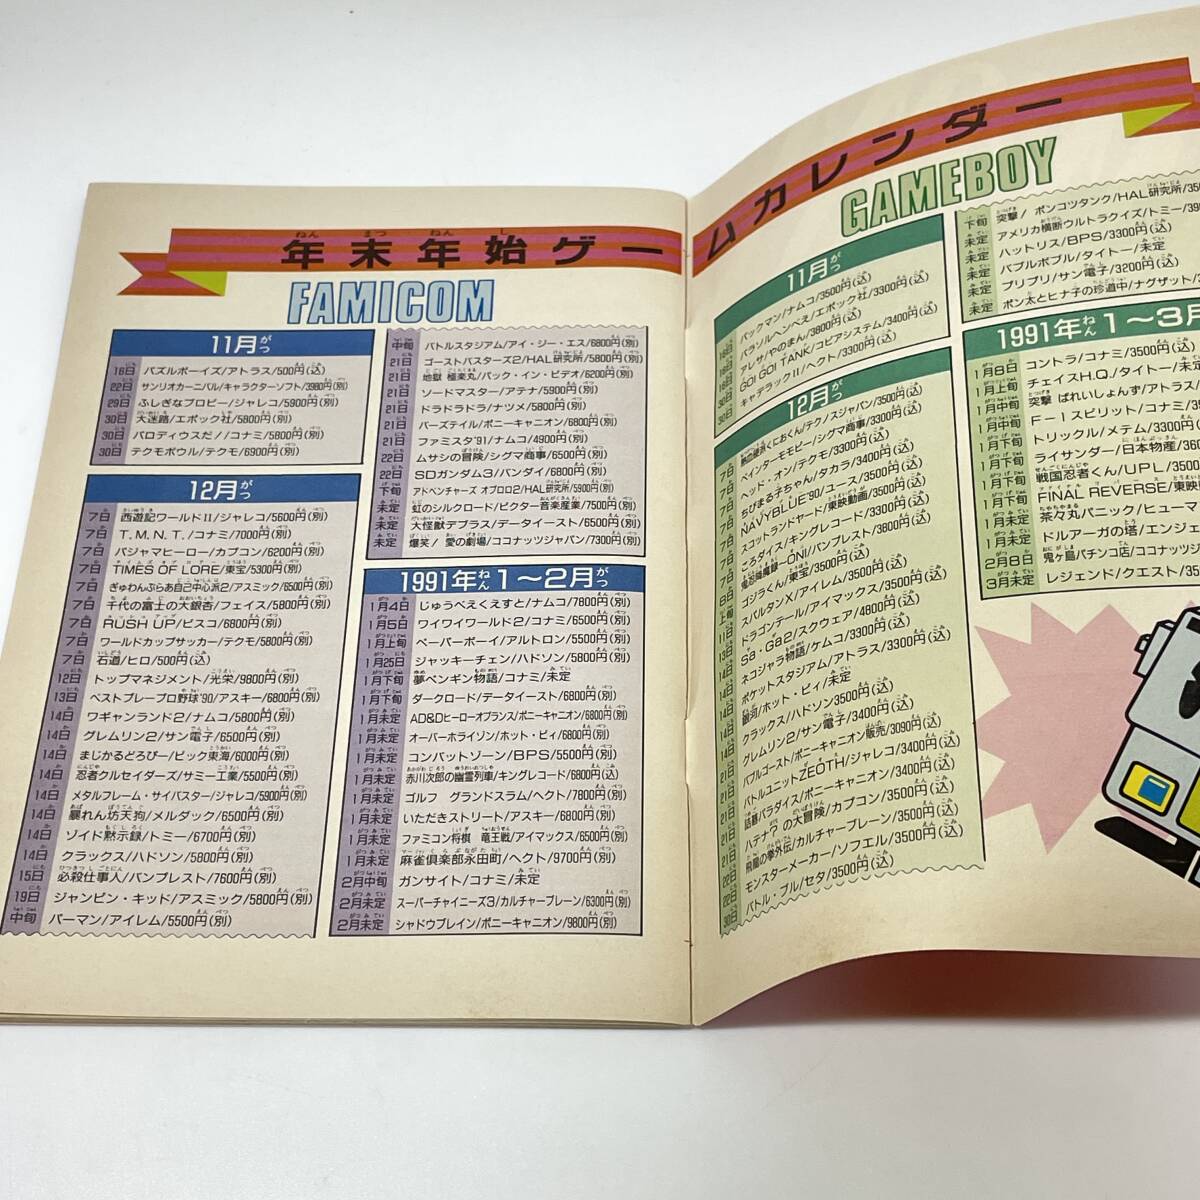 年末年始ゲームカレンダー
FAMICOM
11月
16日 パズルボーイズ/アトラス/500円(込)
22日 サンリオカーニバル/キャラクターソフト/3980円(別)
29日 ふしぎなブロビー/ジャレコ/5900円(別)
30日 大迷路/エポック社/5800円(別)
30日 パロディウスだ!/コナミ/5800円(別)
30日 テクモボウル/テクモ/6900円(別)
12月
7日 西遊記ワールドII/ジャレコ/5600円(別)
7日 T.M.N.T./コナミ/7000円(別)
7日 パジャマヒーロー/カプコン/6200円(別)
7日 TIMES OF LORE/東宝/5300円(別)
7日 ぎゅわんぶらあ自己中心派2/アスミック/6500円(別)
7日 千代の富士の大銀杏/フェイス/5800円(別)
7日 RUSH UP/ビスコ/6800円(別)
7日 ワールドカップサッカー/テクモ/5800円(別)
7日 石道/ヒロ/500円(込)
12日 トップマネジメント/光栄/9800円(別)
13日 ベストプレープロ野球'90/アスキー/6800円(別)
14日 ワギャンランド2/ナムコ/5800円(別)
14日 グレムリン2/サン電子/6500円(別)
14日 まじかるどろぴー/ビック東海/6000円(別)
14日 忍者クルセイダーズ/サミー工業/5500円(別)
14日 メタルフレーム・サイバスター/ジャレコ/5900円(別)
14日 暴れん坊天狗/メルダック/6500円(別)
14日 ゾイド黙示録/トミー/6700円(別)
14日 クラックス/ハドソン/5800円(別)
15日 必殺仕事人/バンプレスト/7600円(別)
19日 ジャンピン・キッド/アスミック/5800円(別)
中旬 バーマン/アイレム/5500円(別)
中旬 バトルスタジアム/アイ・ジー・エス/6800円(別)
21日 ゴーストバスターズ2/HAL研究所/5800円(別)
21日 地獄 極楽丸/パック・イン・ビデオ/6200円(別)
21日 ソードマスター/アテナ/5900円(別)
21日 ドラドラドラ/ナツメ/5800円(別)
21日 バーズテイル/ポニーキャニオン/6800円(別)
21日 ファミスタ'91/ナムコ/4900円(別)
22日 ムサシの冒険/シグマ商事/6500円(別)
22日 SDガンダム3/バンダイ/6800円(別)
下旬 アドベンチャーズ オブロロ2/HAL研究所/5900円(別)
未定 虹のシルクロード/ビクター音楽産業/7500円(別)
未定 大怪獣デブラス/データイースト/6500円(別)
未定 爆笑!愛の劇場/ココナッツジャパン/7300円(別)
1991年1〜2月
1月4日 じゅうべえくえすと/ナムコ/7800円(別)
1月5日 ワイワイワールド2/コナミ/6500円(別)
1月上旬 ペーパーボーイ/アルトロン/5500円(別)
1月25日 ジャッキーチェン/ハドソン/5800円(別)
1月下旬 夢ペンギン物語/コナミ/未定
1月下旬 ダークロード/データイースト/6800円(別)
1月未定 AD&Dヒーローオブランス/ポニーキャニオン/6800円(別)
1月未定 オーバーホライゾン/ホット・ビィ/6800円(別)
1月未定 コンバットゾーン/BPS/5500円(別)
1月未定 赤川次郎の幽霊列車/キングレコード/6800円(込)
1月未定 ゴルフ グランドスラム/ヘクト/7800円(別)
1月未定 いただきストリート/アスキー/6800円(別)
1月未定 ファミコン将棋 竜王戦/アイマックス/6500円(別)
1月未定 麻雀倶楽部永田町/ヘクト/9700円(別)
2月中旬 ガンサイト/コナミ/未定
2月未定 スーパーチャイニーズ3/カルチャーブレーン/6300円(別)
2月未定 シャドウブレイン/ポニーキャニオン/9800円(別)
GAMEBOY
11月
16日 パックマン/ナムコ/3500円(込)
パラソルヘンべえ/エポック社/3300円(込)
アレサ/やのまん/3800円(込)
GO!GO!TANK/コピアシステム/3400円(込)
30日 キャデラックII/ヘクト/3300円(込)
12月
熱血硬派くにおくん/テクノスジャパン/3500円(込)
7日 ペインターモモピー/シグマ商事/3300円(込)
7日 ヘッド・オン/テクモ/3300円(込)
7日 ちびまる子ちゃん/タカラ/3400円(込)
7日 NAVYBLUE'90/ユース/3500円(込)
7日 スコットランドヤード/東映動画/3500円(込)
7日 ころダイス/キングレコード/3300円(込)
鬼忍降魔録-ONI/バンプレスト/3800円(込)
ゴジラくん/東宝/3500円(込)
スパルタンX/アイレム/3500円(込)
ドラゴンテール/アイマックス/3500円(込)
Sa・Ga2/スクウェア/4800円(込)
ネコジャラ物語/ケムコ/3300円(込)
ポケットスタジアム/アトラス/3300円(込)
銀河/ホット・ビィ/未定
クラックス/ハドソン/3500円(込)
グレムリン2/サン電子/3400円(込)
バブルゴースト/ポニーキャニオン販売/3090円(込)
バトルユニットZEOTH/ジャレコ/3400円(込)
詰碁パラダイス/ポニーキャニオン/3400円(込)
ハテナ?の大冒険/カプコン/3500円(込)
飛龍の拳外伝/カルチャーブレーン/3500円(込)
モンスターメーカー/ソフエル/3500円(込)
30日 バトル・ブル/セタ/3500円(込)
下旬 突撃!ポンコツタンク/HAL研究所/350
未定 アメリカ横断ウルトラクイズ/トミー/39
未定 ハットリス/BPS/3300円(込)
未定 バブルボブル/タイトー/未定
未定 プリプリ/サン電子/3200円(込)
未定 ポン太とヒナ子の珍道中/ナグザット/3
1991年1〜3月
1月8日 コントラ/コナミ/3500円(込)
1月上旬 チェイスH.Q./タイトー/未定
1月中旬 突撃 ばれいしょんず/アトラス/
1月中旬 F-1スピリット/コナミ/35
1月下旬 トリックル/メテム/3300円
1月下旬 ライサンダー/日本物産/36
1月下旬 戦国忍者くん/UPL/3500円
1月未定 FINAL REVERSE/東映
1月未定 茶々丸パニック/ヒューマ
1月未定 ドルアーガの塔/エンジェ
2月8日 鬼ヶ島パチンコ店/ココナッツジ
3月未定 レジェンド/クエスト/35